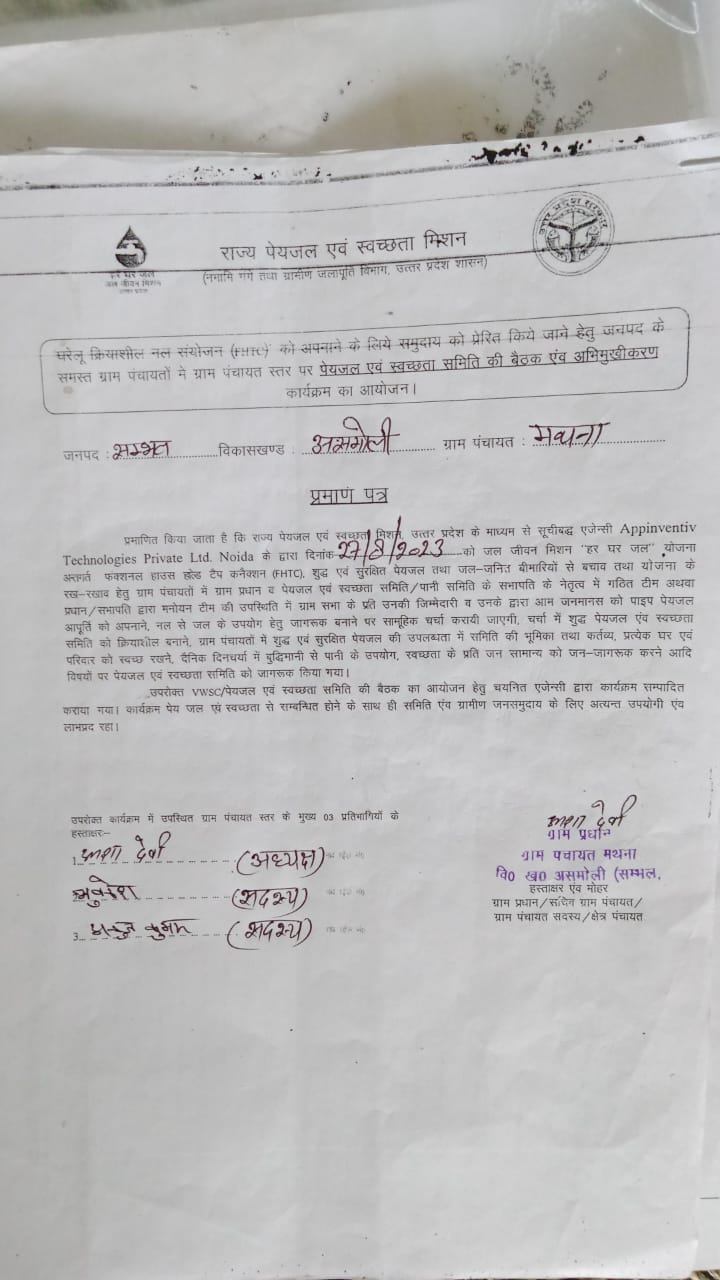 हर घर जल
जल जीवन मिशन
उत्तर प्रदेश
राज्य पेयजल एवं स्वच्छता मिशन
(नमामि गंगे तथा ग्रामीण जलापूर्ति विभाग, उत्तर प्रदेश शासन)
उत्तर प्रदेश सरकार
घरेलू क्रियाशील नल संयोजन (FHTC) को अपनाने के लिये समुदाय को प्रेरित किये जाने हेतु जनपद के
समस्त ग्राम पंचायतों मे ग्राम पंचायत स्तर पर पेयजल एवं स्वच्छता समिति की बैठक एंव अभिमुखीकरण
कार्यक्रम का आयोजन।
जनपद : सम्भल विकासखण्ड : असमोली ग्राम पंचायत : मथना
प्रमाण पत्र
प्रमाणित किया जाता है कि राज्य पेयजल एवं स्वच्छता मिशन, उत्तर प्रदेश के माध्यम से सूचीबद्ध एजेन्सी Appinventiv
Technologies Private Ltd. Noida के द्वारा दिनांक 27/8/2023 को जल जीवन मिशन "हर घर जल" योजना
अन्तर्गत फंक्शनल हाउस होल्ड टैप कनैक्शन (FHTC), शुद्ध एवं सुरक्षित पेयजल तथा जल-जनित बीमारियों से बचाव तथा योजना के
रख-रखाव हेतु ग्राम पंचायतों में ग्राम प्रधान व पेयजल एवं स्वच्छता समिति/पानी समिति के सभापति के नेतृत्व में गठित टीम अथवा
प्रधान/सभापति द्वारा मनोयन टीम की उपस्थिति में ग्राम सभा के प्रति उनकी जिम्मेदारी व उनके द्वारा आम जनमानस को पाइप पेयजल
आपूर्ति को अपनाने, नल से जल के उपयोग हेतु जागरूक बनाने पर सामूहिक चर्चा करायी जाएगी, चर्चा में शुद्ध पेयजल एंव स्वच्छता
समिति को क्रियाशील बनाने, ग्राम पंचायतों में शुद्ध एवं सुरक्षित पेयजल की उपलब्धता में समिति की भूमिका तथा कर्तव्य, प्रत्येक घर एवं
परिवार को स्वच्छ रखने, दैनिक दिनचर्या में बुद्धिमानी से पानी के उपयोग, स्वच्छता के प्रति जन सामान्य को जन-जागरूक करने आदि
विषयों पर पेयजल एवं स्वच्छता समिति को जागरूक किया गया।
उपरोक्त VWSC/पेयजल एवं स्वच्छता समिति की बैठक का आयोजन हेतु चयनित एजेन्सी द्वारा कार्यक्रम सम्पादित
कराया गया। कार्यक्रम पेय जल एवं स्वच्छता से सम्बन्धित होने के साथ ही समिति एंव ग्रामीण जनसमुदाय के लिए अत्यन्त उपयोगी एंव
लाभप्रद रहा।
उपरोक्त कार्यक्रम में उपस्थित ग्राम पंचायत स्तर के मुख्य 03 प्रतिभागियों के
हस्ताक्षर:-
1. देवी (अध्यक्ष)
मुकेश (सदस्य)
3. कुमार (सदस्य)
देवी
ग्राम प्रधान
ग्राम पंचायत मथना
वि० ख० असमोली (सम्भल,
हस्ताक्षर एंव मोहर
ग्राम प्रधान/सचिव ग्राम पंचायत/
ग्राम पंचायत सदस्य/क्षेत्र पंचायत